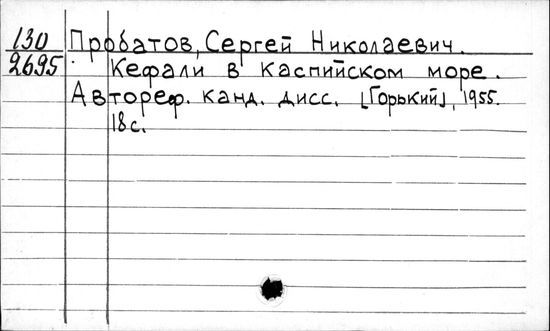 130 Пробатов, Сергей Николаевич.
2695 Кефали в каспийском море.
Автореф. канд. дисс. [Горький], 1955.
18 с.